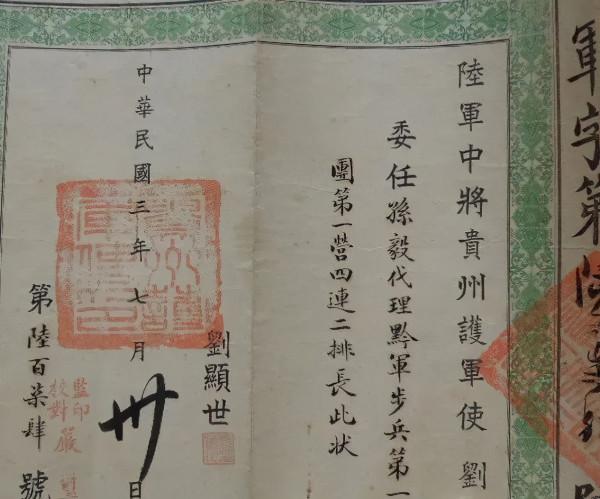 軍字第陸
陸軍中將貴州護軍使劉
委任孫毅代理黔軍步兵第一
團第一營四連二排長此狀
劉顯世
中華民國三年七月卅日
貴州護軍使印
監印
校對嚴
第陸百柒肆號